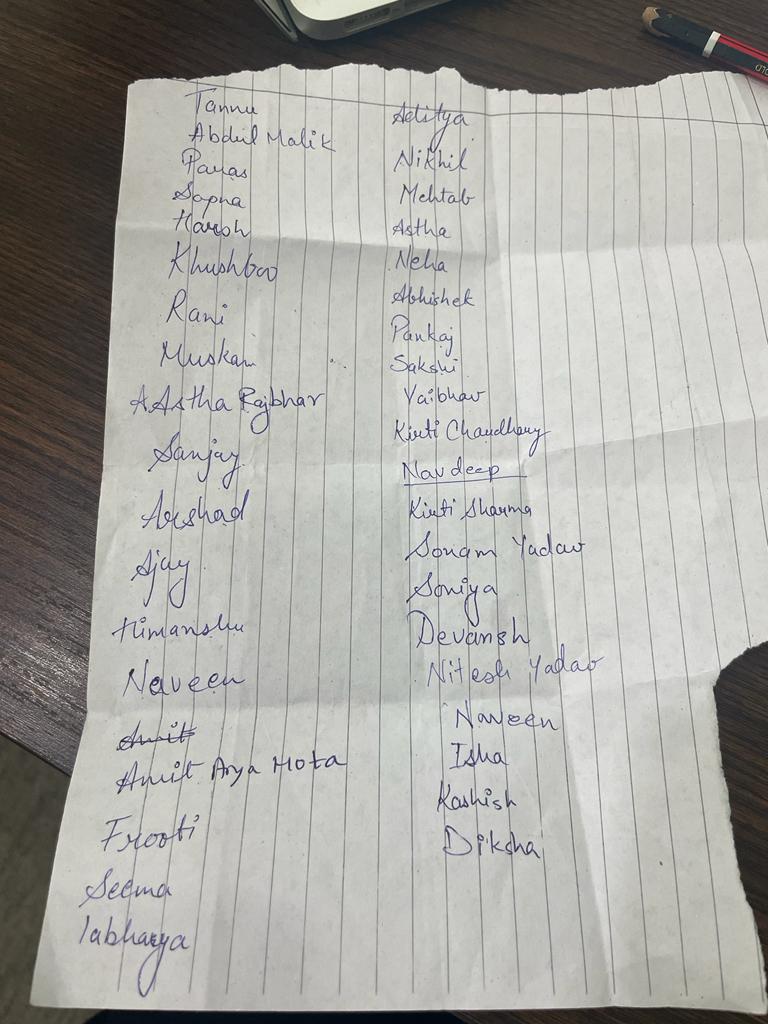 Tannu
Abdul Malik
Paras
Sapna
Harsh
Khushboo
Rani
Muskan
AAstha Rajbhar
Sanjay
Arshad
Ajay
Himanshu
Naveen
Amit
Amit Arya Mota
Frooti
Seema
labharya
Aditya
Nikhil
Mehtab
Astha
Neha
Abhishek
Pankaj
Sakshi
Vaibhav
Kirti Chaudhary
Navdeep
Kirti Sharma
Sonam Yadav
Soniya
Devansh
Nitesh Yadav
Naveen
Isha
Kashish
Diksha